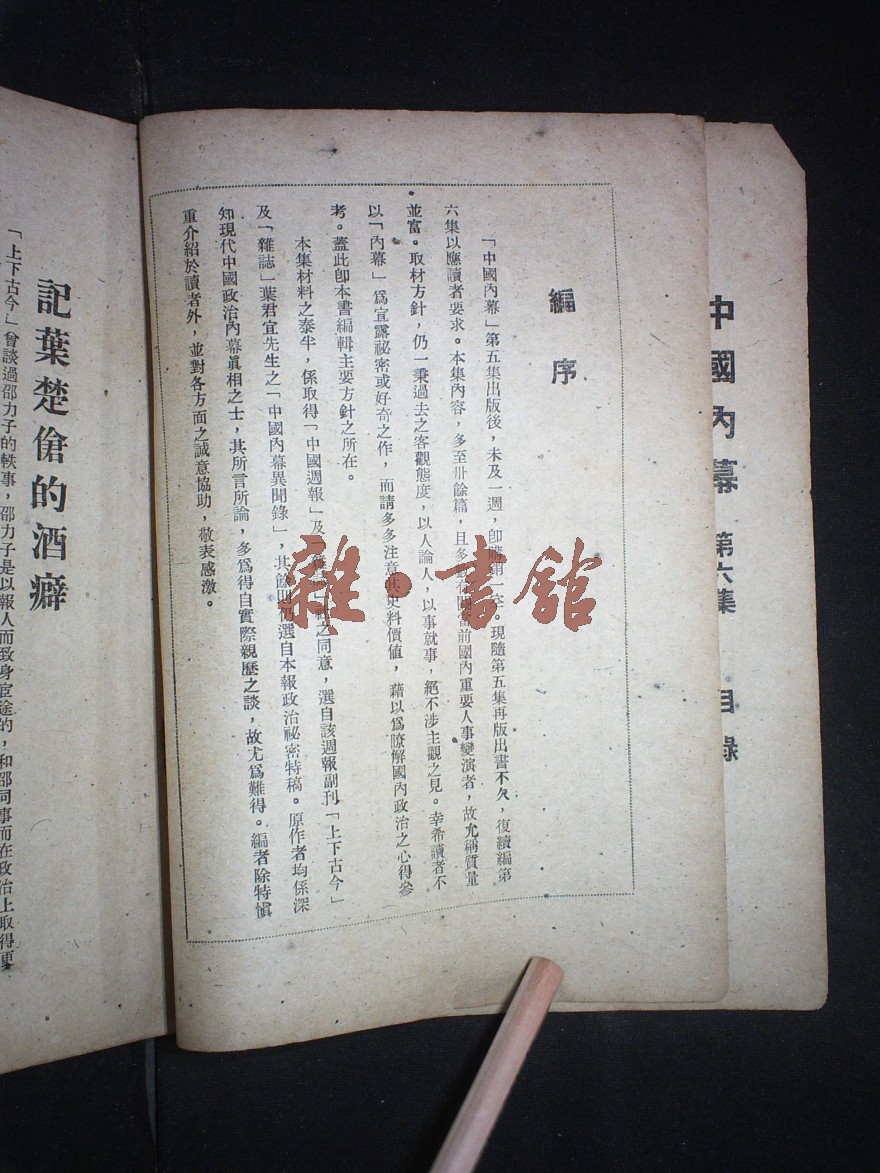 中國內幕 第六集 目錄
編序
「中國內幕」第五集出版後，未及一週，卽
一空。現隨第五集再版出書不久，復續編第
六集以應讀者要求。本集內容，多至卅餘篇，且多
當前國內重要人事變演者，故允稱質量
並富。取材方針，仍一秉過去之客觀態度，以人論人，以事就事，絕不涉主觀之見。幸希讀者不
以「內幕」爲宣露祕密或好奇之作，而請多多注意其史料價值，藉以爲瞭解國內政治之心得參
考。蓋此卽本書編輯主要方針之所在。
本集材料之泰半，係取得「中國週報」及
之同意，選自該週報副刊「上下古今」
及「雜誌」葉君宜先生之「中國內幕異聞錄」，其餘則仍選自本報政治祕密特稿。原作者均係深
知現代中國政治內幕眞相之士，其所言所論，多爲得自實際親歷之談，故尤爲難得。編者除特愼
重介紹於讀者外，並對各方面之誠意協助，敬表感激。
雜·書館
記葉楚傖的酒癖
「上下古今」曾談過邵力子的軼事，邵力子是以報人而致身宦途的，和邵同事而在政治上取得更